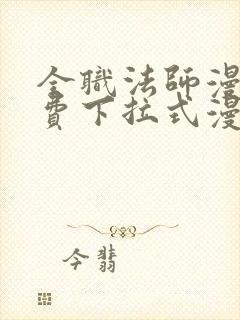 全職法師漫
費下拉式漫
今翡